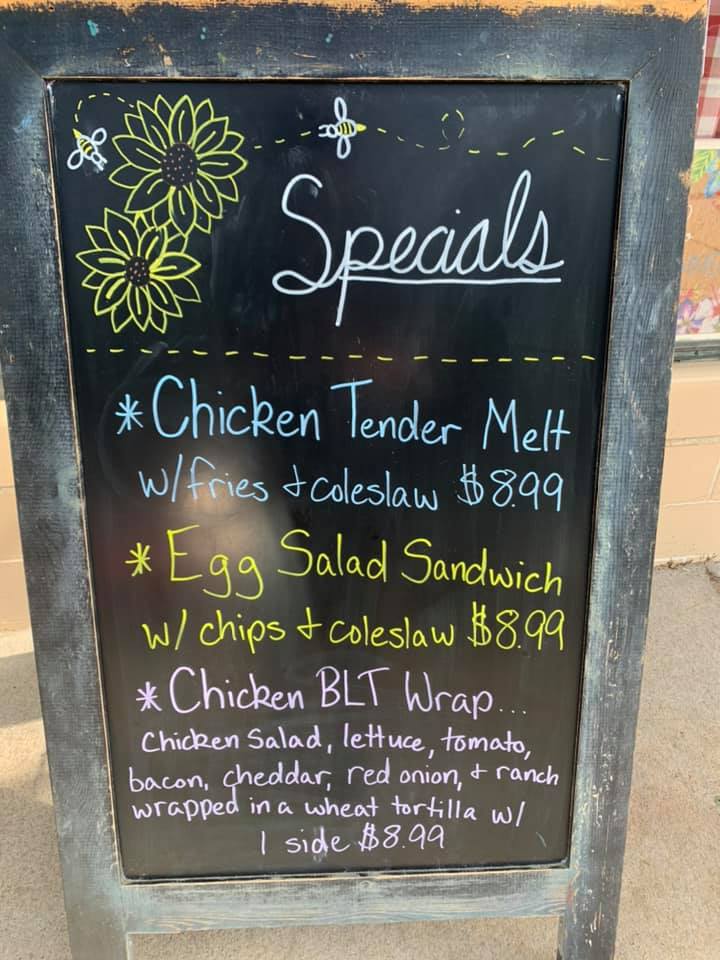 Specials
*Chicken Tender Melt
w/fries + coleslaw $8.99
*Egg Salad Sandwich
w/ chips + coleslaw $8.99
*Chicken BLT Wrap...
Chicken Salad, lettuce, tomato,
bacon, cheddar, red onion, + ranch
wrapped in a wheat tortilla w/
1 side $8.99